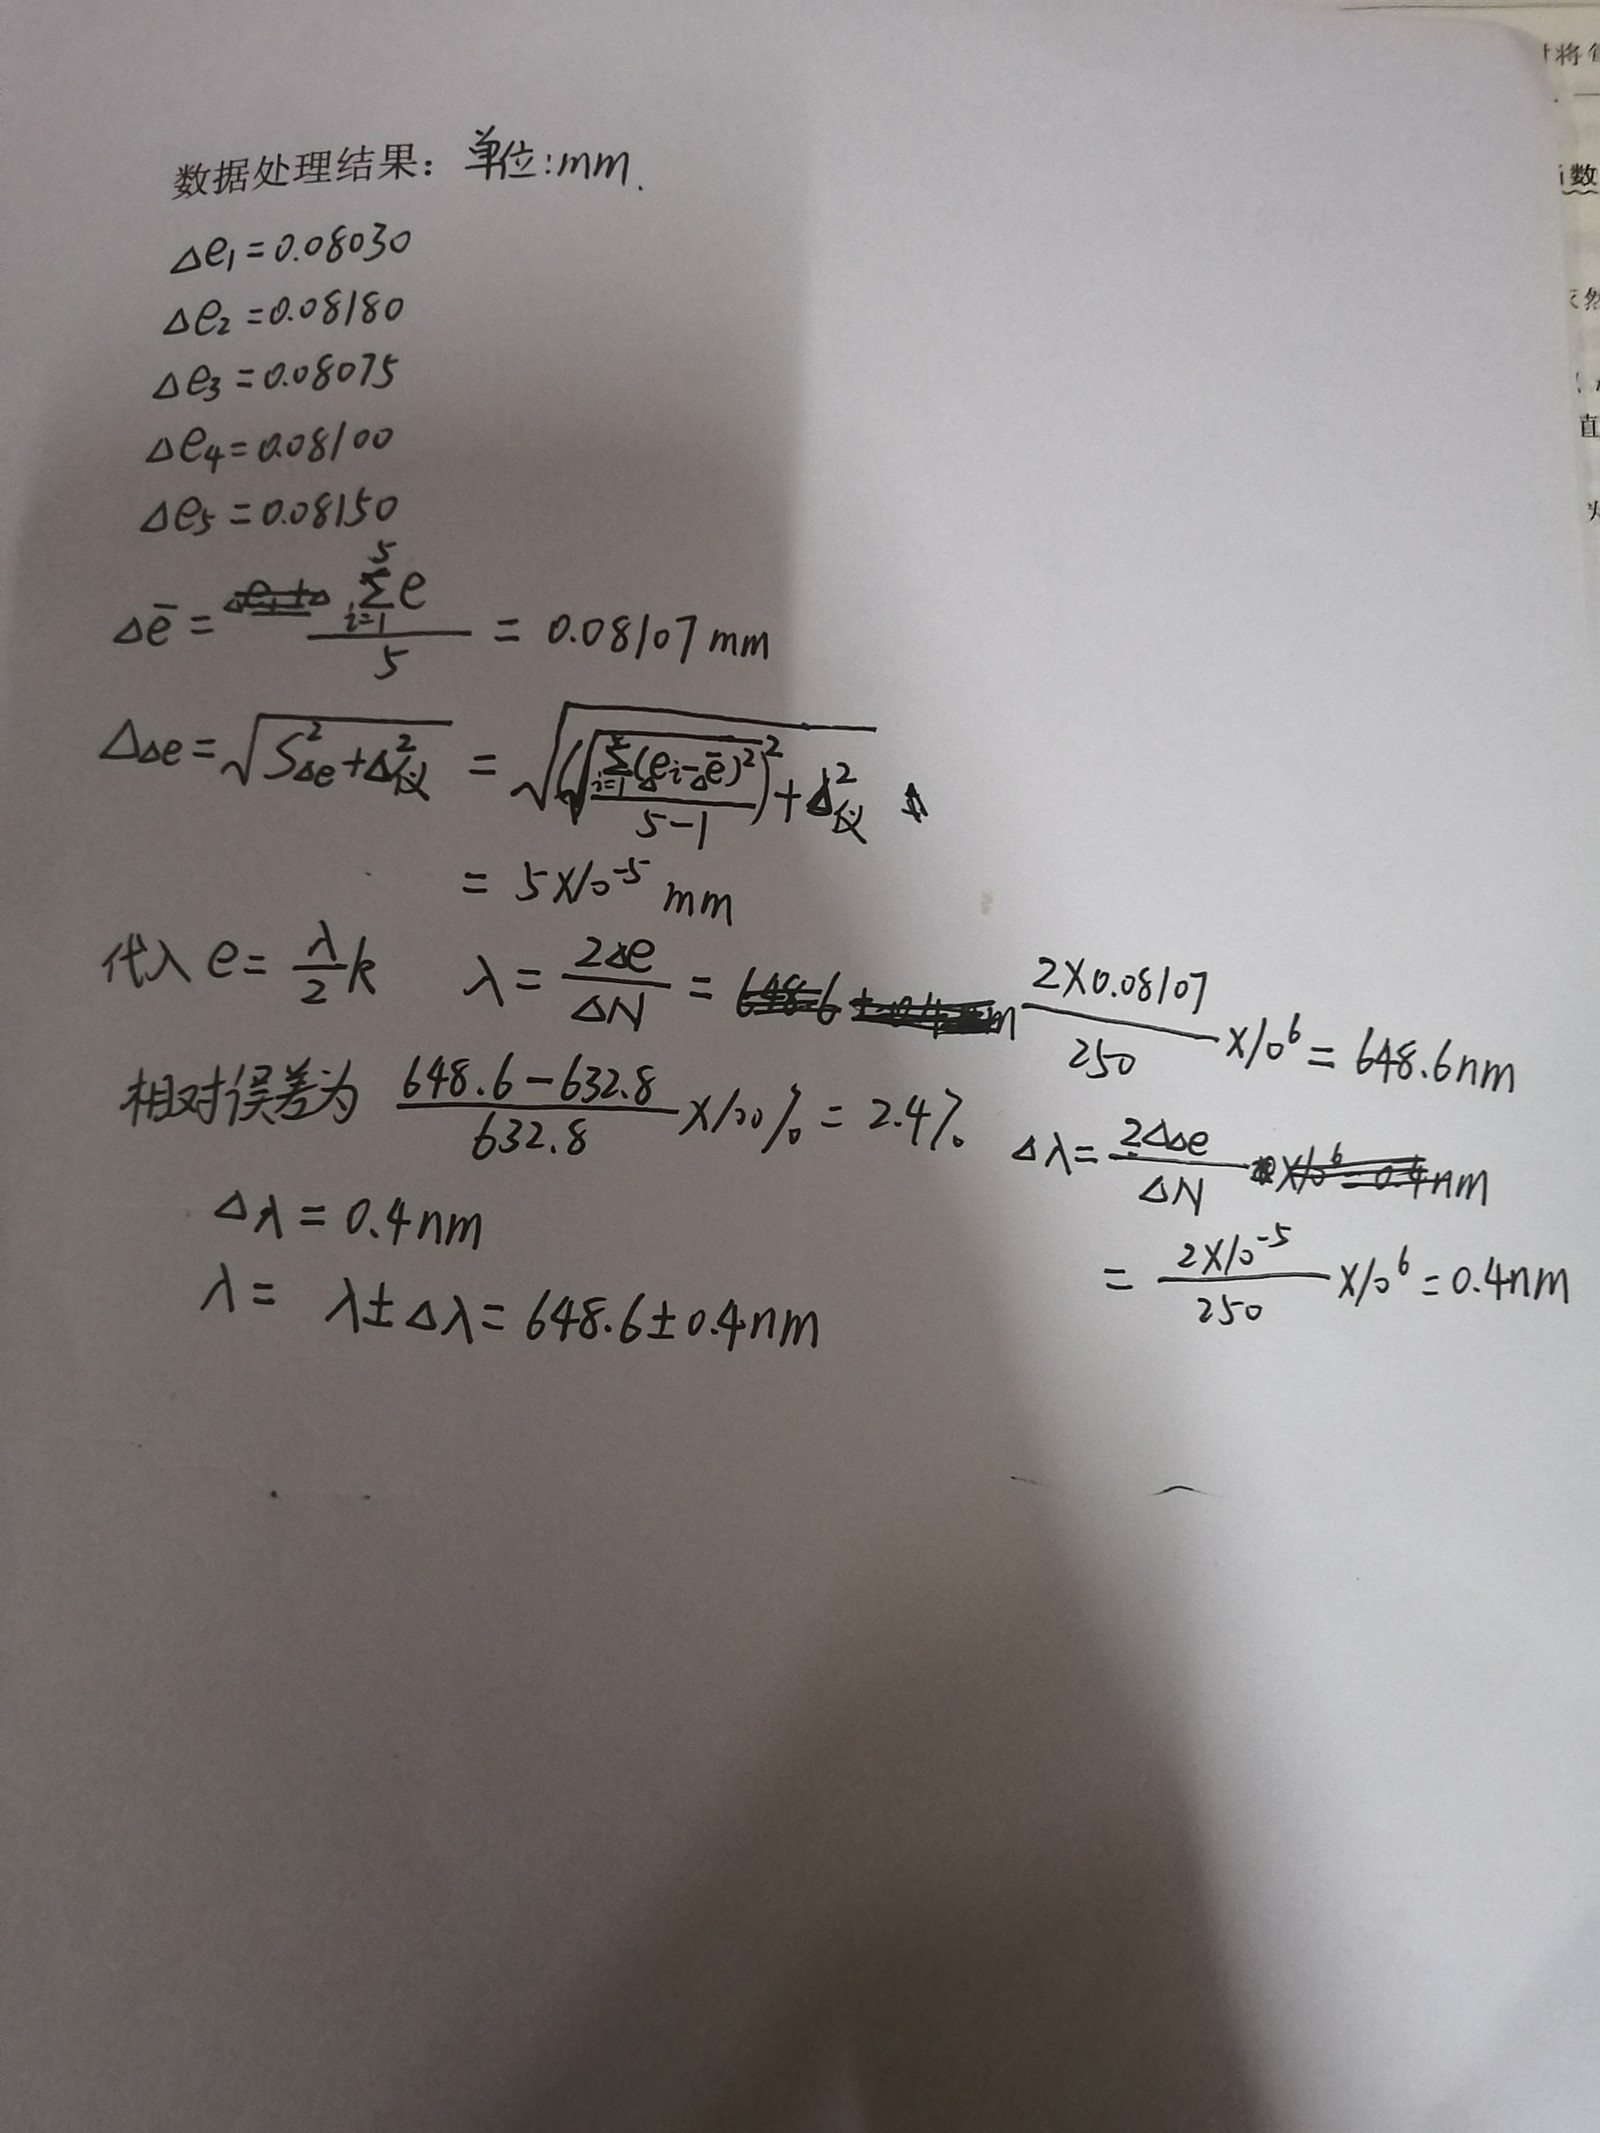 数据处理结果：单位:mm.
Δe₁=0.08030
Δe₂=0.08180
Δe₃=0.08075
Δe₄=0.08100
Δe₅=0.08150
Δē = \frac{\sum_{i=1}^{5} e}{5} = 0.08107 mm
Δ_{Δe} = \sqrt{S_{Δe}^2+Δ_{仪}^2} = \sqrt{(\sqrt{\frac{\sum_{i=1}^{5}(Δe_i-Δē)^2}{5-1}})^2+Δ_{仪}^2}
= 5×10⁻⁵ mm
代入 e = \frac{λ}{2}k λ = \frac{2Δe}{ΔN} = \frac{2×0.08107}{250}×10⁶ = 648.6nm
相对误差为 \frac{648.6-632.8}{632.8}×100% = 2.4%
Δλ = \frac{2Δ_{Δe}}{ΔN}
= \frac{2×10⁻⁵}{250}×10⁶ = 0.4nm
Δλ = 0.4nm
λ = λ±Δλ = 648.6±0.4nm
将
数
然
直